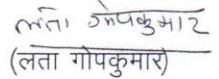 लता गोपकुमार
(लता गोपकुमार)